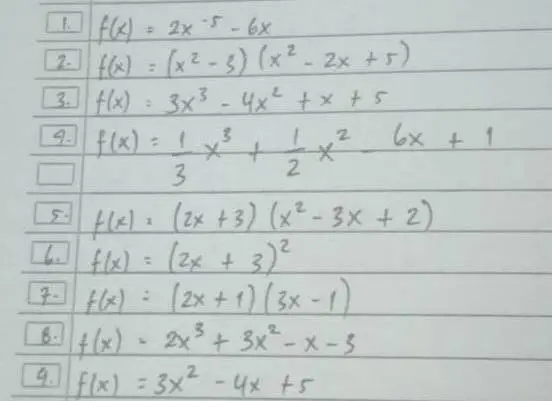 1. f(x) = 2x⁻⁵ - 6x
2. f(x) = (x² - 3)(x² - 2x + 5)
3. f(x) = 3x³ - 4x² + x + 5
4. f(x) = 1/3 x³ + 1/2 x² - 6x + 1
5. f(x) = (2x + 3)(x² - 3x + 2)
6. f(x) = (2x + 3)²
7. f(x) = (2x + 1)(3x - 1)
8. f(x) = 2x³ + 3x² - x - 3
9. f(x) = 3x² - 4x + 5